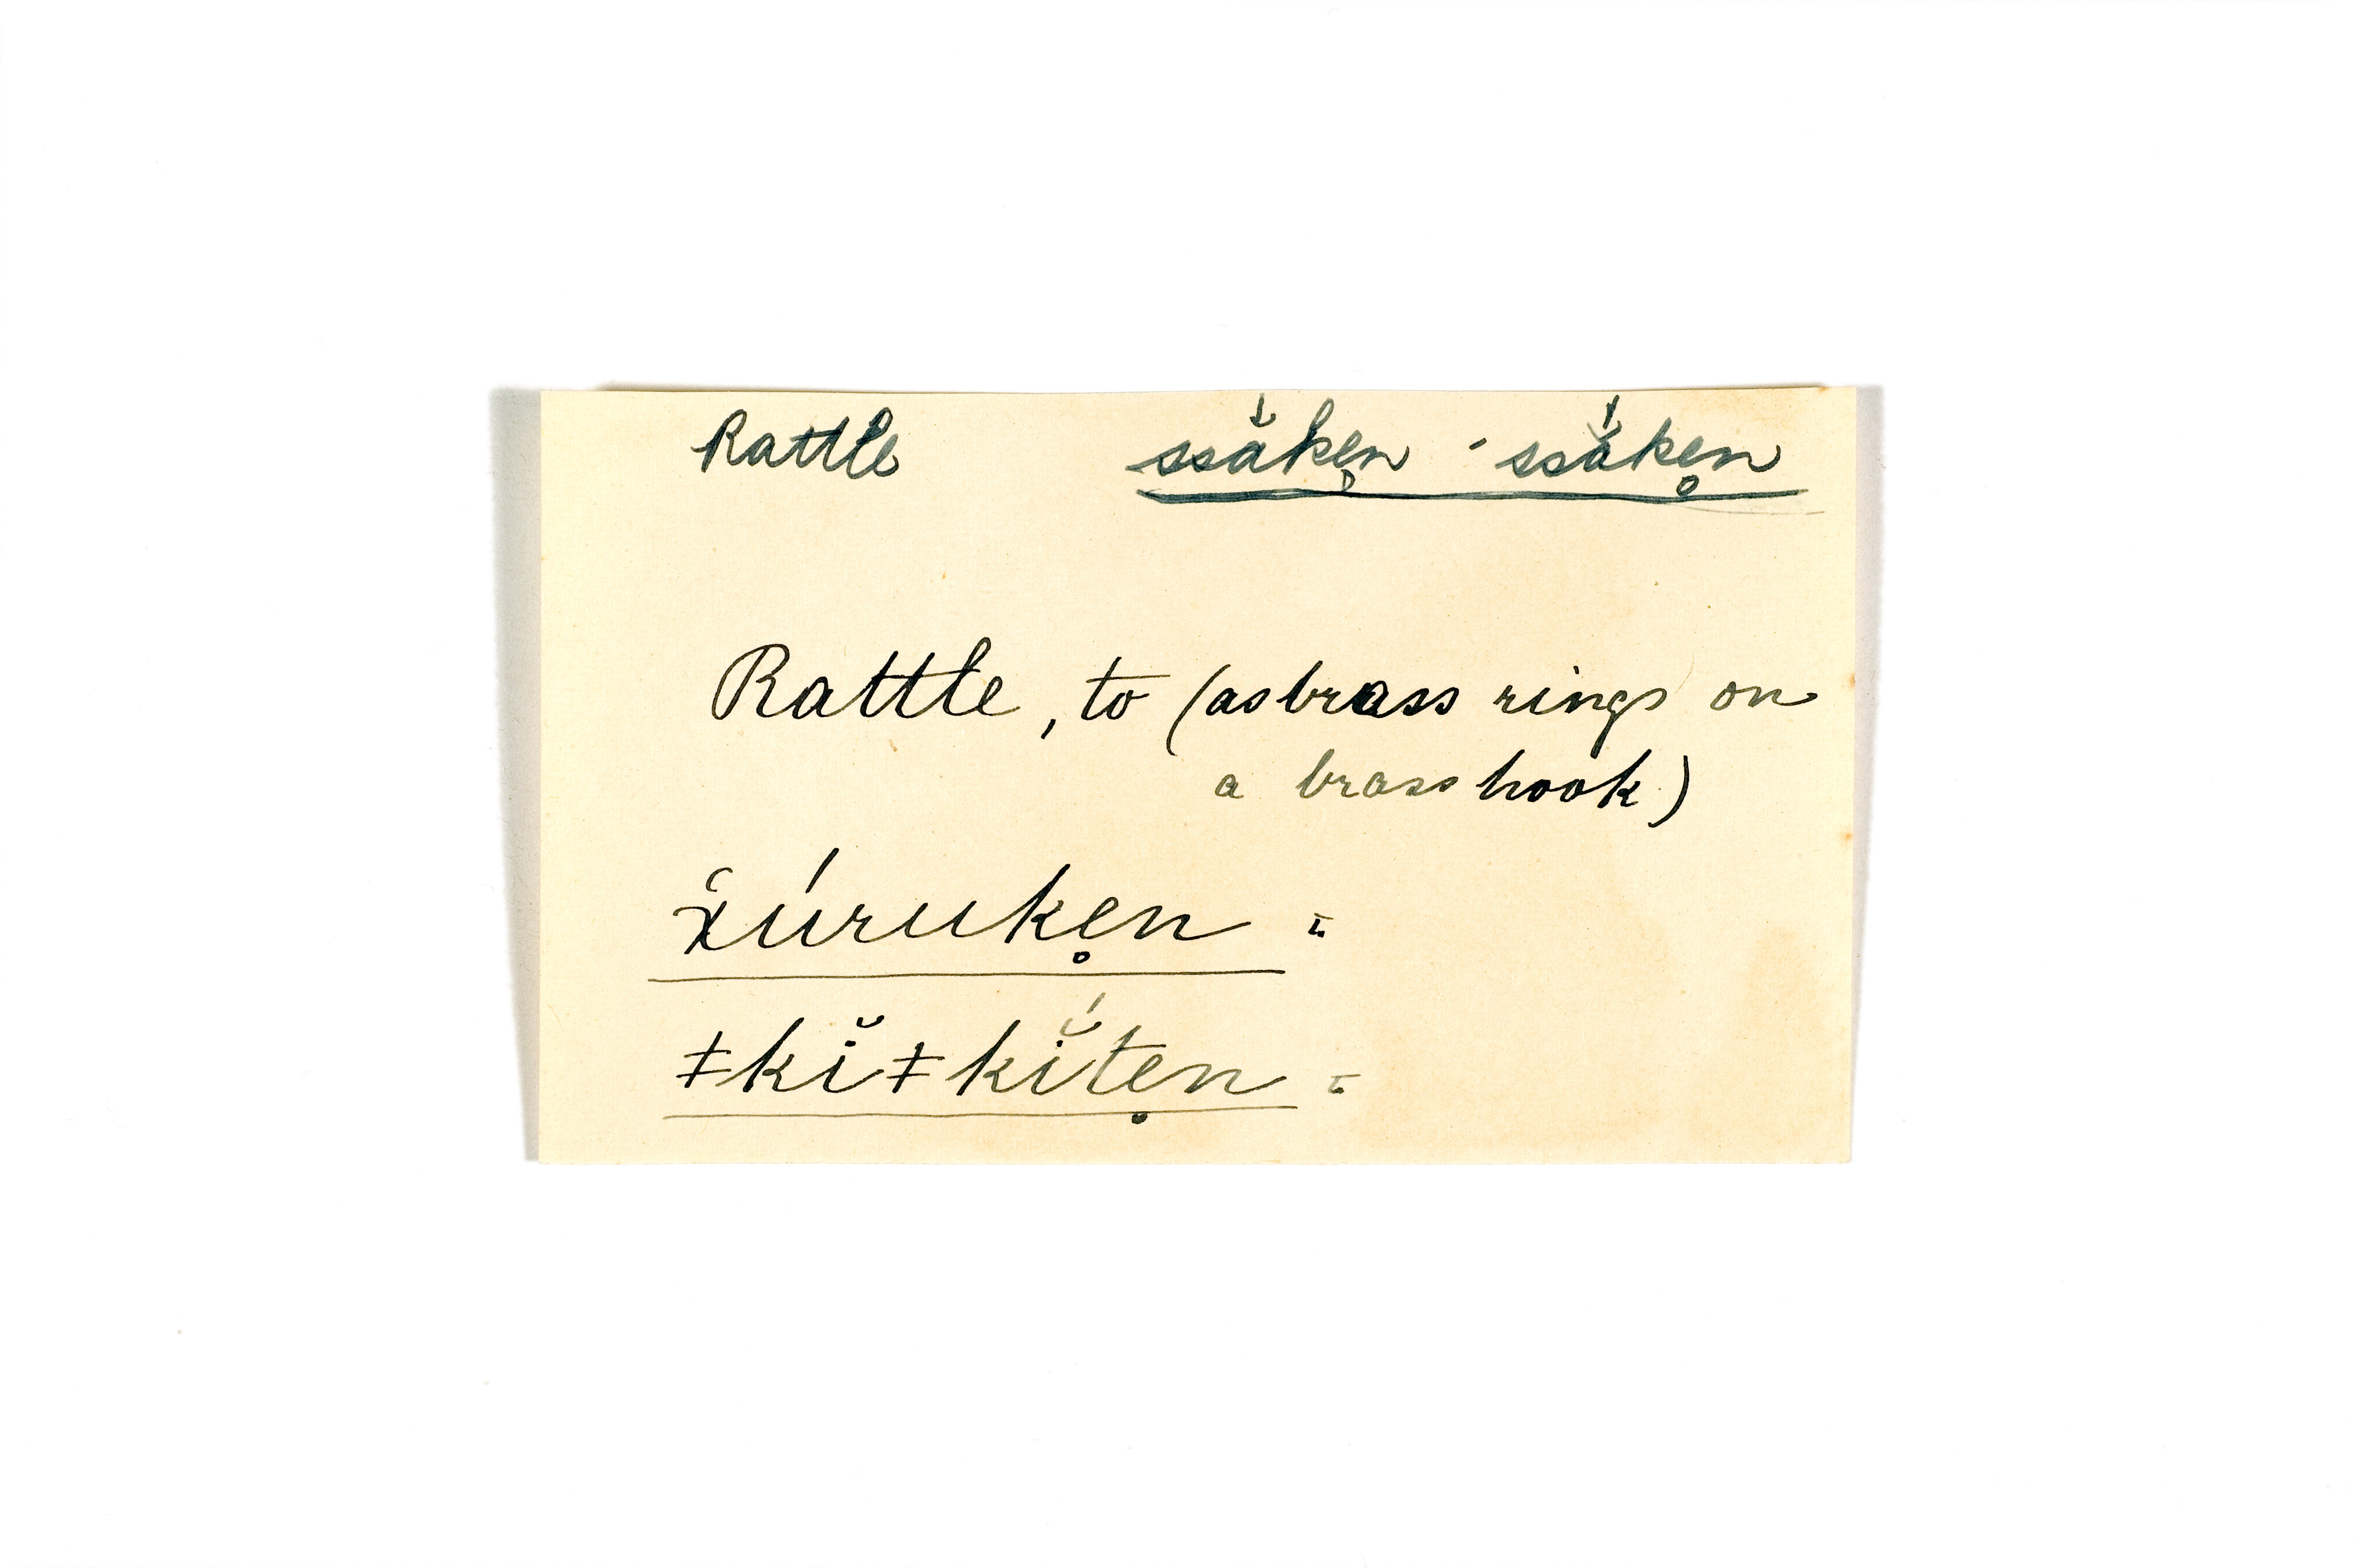 Rattle ssắke̥n - ssắke̥n
Rattle, to (as brass rings on
a brass hook)
χ̔úruke̥n =
ǂkĭǂkĭ́te̥n =